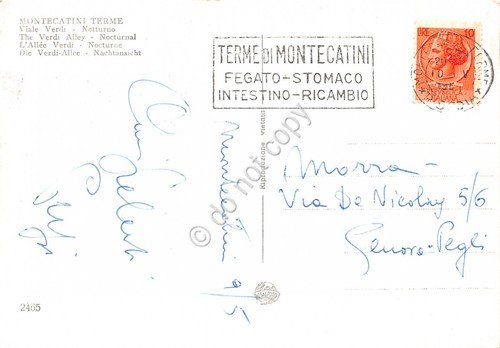 MONTECATINI TERME
Viale Verdi - Notturno
The Verdi Alley - Nocturnal
L'Allée Verdi - Nocturne
Die Verdi-Allee - Nachtansicht
TERME DI MONTECATINI
FEGATO-STOMACO
INTESTINO-RICAMBIO
10
Riproduzione vietata
do not copy
Montecatini 9/5
Morra-
Via De Nicolay 5/6
Genova-Pegli
2465